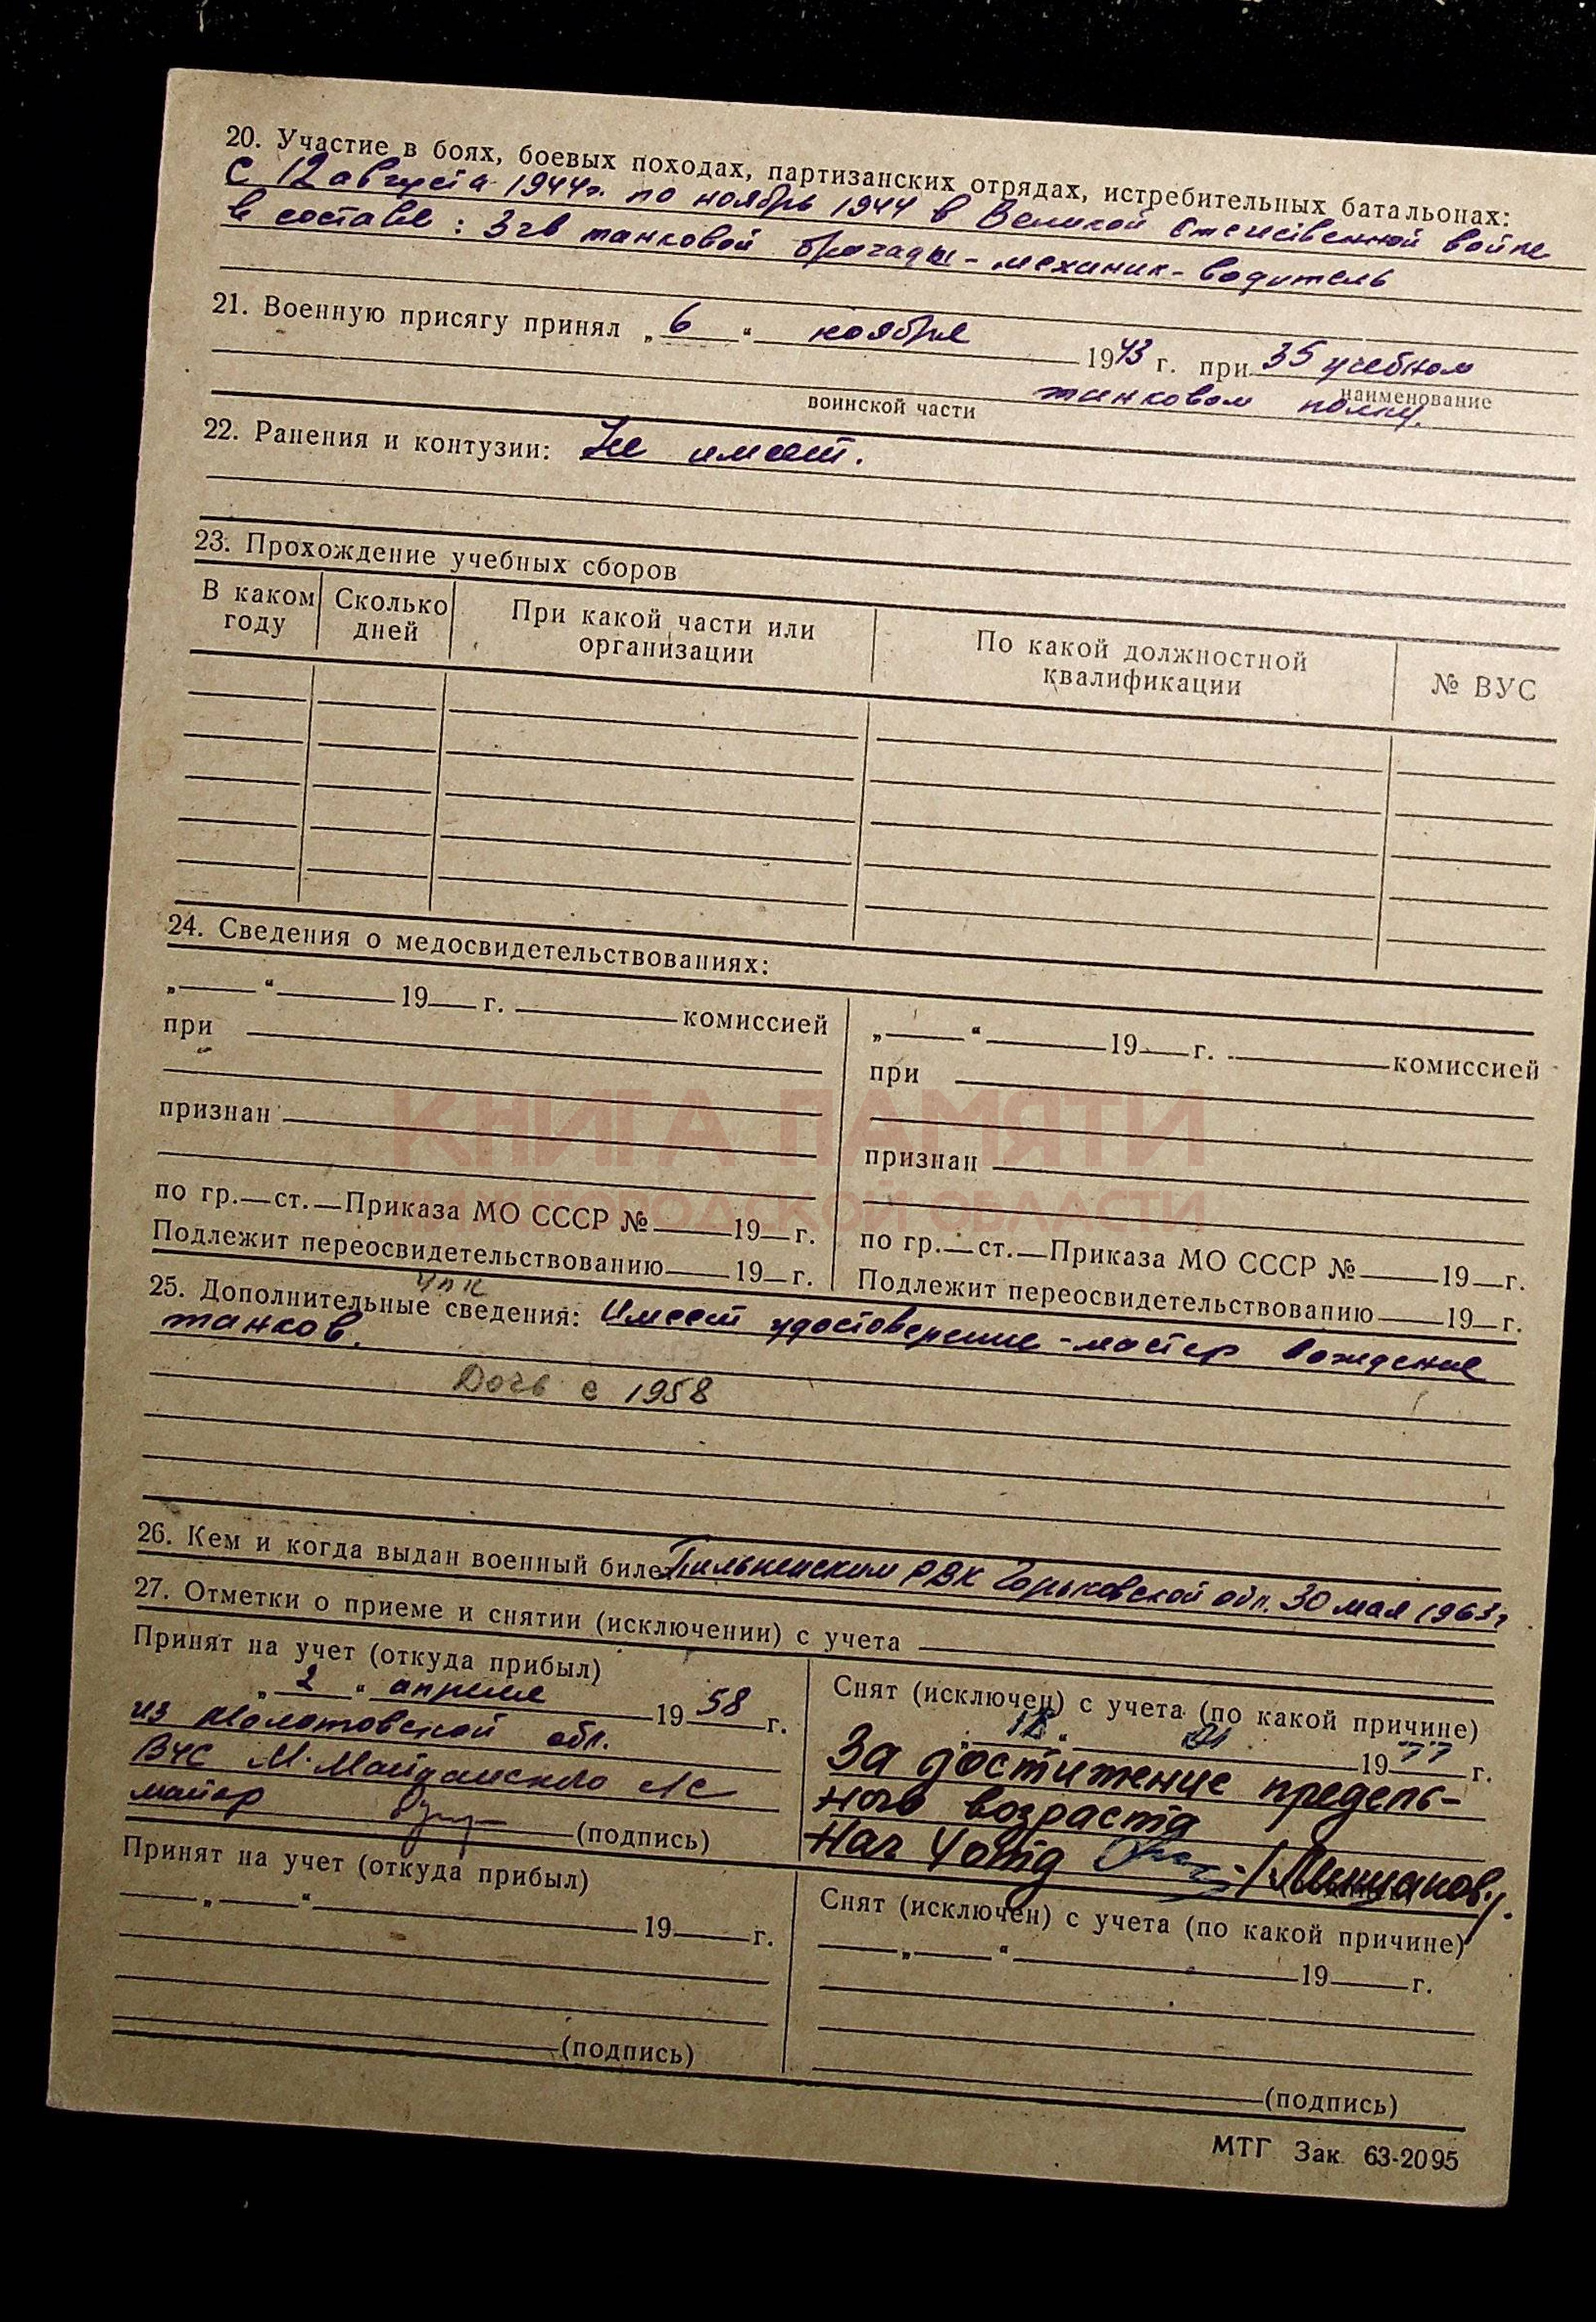 20. Участие в боях, боевых походах, партизанских отрядах, истребительных батальонах:
с 12 августа 1944г. по ноябрь 1944 в Великой Отечественной войне
в составе: 3 гв танковой бригады - механик-водитель
21. Военную присягу принял „6“ ноября 1943 г. при 35 учебном
наименование
танковом полку.
воинской части
22. Ранения и контузии: Не имеет.
23. Прохождение учебных сборов
В каком году Сколько дней При какой части или организации По какой должностной квалификации № ВУС
24. Сведения о медосвидетельствованиях:
„ “ 19 г. комиссией
при
признан
по гр. ст. Приказа МО СССР № 19 г.
Подлежит переосвидетельствованию 19 г.
„ “ 19 г. комиссией
при
признан
по гр. ст. Приказа МО СССР № 19 г.
Подлежит переосвидетельствованию 19 г.
КНИГА ПАМЯТИ
НИЖЕГОРОДСКОЙ ОБЛАСТИ
25. Дополнительные сведения: Имеет удостоверение - мастер вождение
танков.
Дочь с 1958
26. Кем и когда выдан военный билет Пильненским РВК Горьковской обл. 30 мая 1963г
27. Отметки о приеме и снятии (исключении) с учета
Принят на учет (откуда прибыл)
„2“ апреля 1958 г.
из Молотовской обл.
ВУС М. Майданского с/с
майор (подпись)
Снят (исключен) с учета (по какой причине)
19 77 г.
За достижение предель-
ного возраста
Нач 4 отд
Принят на учет (откуда прибыл)
„ “ 19 г.
(подпись)
Снят (исключен) с учета (по какой причине)
„ “ 19 г.
(подпись)
МТГ Зак. 63-2095